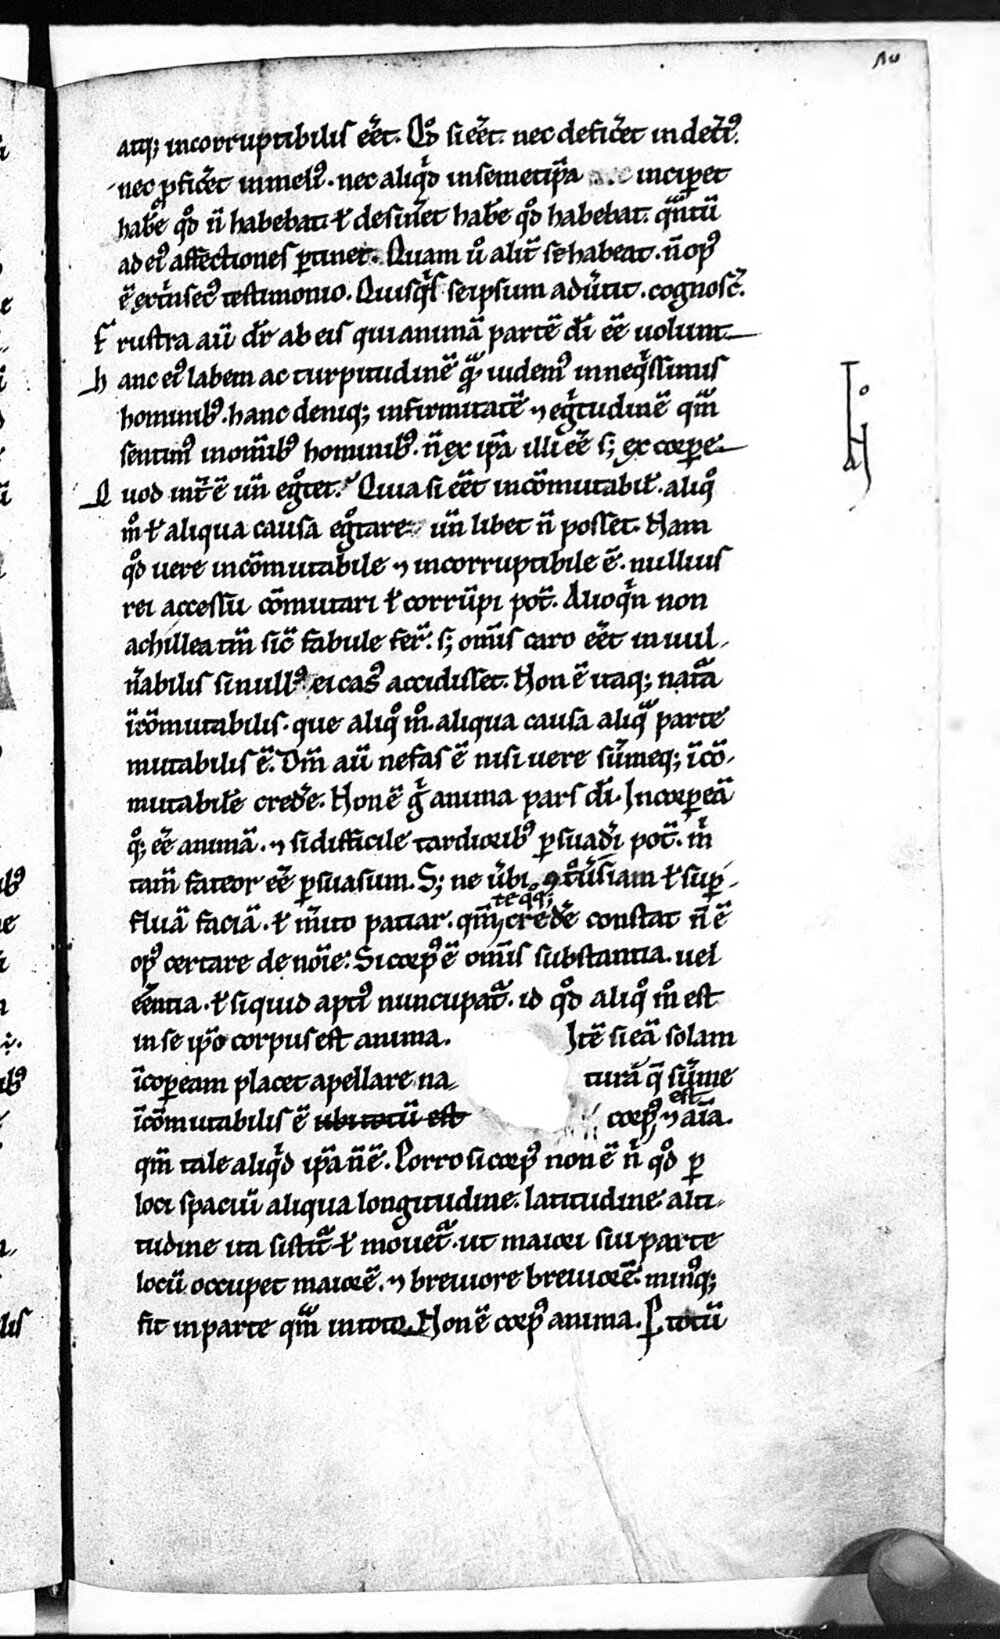 atq; incorruptibilis eēt. Qđ si eēt. nec deficēt in detiꝰ.
nec ꝓficēt in meliꝰ. nec aliqͥd in semetip̄a inciꝑet
habē qđ ñ habebat. ł desinēt habē qđ habebat. qᷓntū
ad eiꝰ affectiones ꝑtinet. Quam ů alit̄ se habeat. ñ opꝰ
ē extͥnsecꝰ testimonio. Quisqͥs seipsum adūtit. cognosc̄.
Frustra aū dr̄ ab eis qui animā partē dī eē uolunt
hanc eiꝰ labem ac turpitudinē qᷓ uidemꝰ in neqͥssimis
hominibꝰ. hanc deniq; infirmitatē ⁊ egͥtudinē qᷓm
sentimꝰ in om̄ibꝰ hominibꝰ. ñ ex ip̄a illi eē s; ex corꝑe
Quod int̄ ē uñ egͦtet. Quia si eēt incōmutabił. aliqͦ
mͦ ł aliqua causa egͦtare uñ libet ñ posset. Nam
qđ uere incōmutabile ⁊ incorruptibile ē. nullius
rei accessu cōmutari ł corrūpi pot̄. Alioqͥn non
achillea tm̄ sic̄ fabule fer̄. s; om̄is caro eēt inuul-
ñabilis si nullꝰ ei casꝰ accidisset. Non ē itaq; natᷓa
īcōmutabilis. que aliqͦ mͦ. aliqua causa aliqᷓ parte
mutabilis ē. Dm̄ aū nefas ē nisi uere sūmeq; īcō-
mutabilē credē. Non ē gͥ anima pars dī. Incorꝑeā
q; eē animā. ⁊ si difficile tardioribꝰ ꝑsuadi pot̄. mͥ
tam̄ fateor eē ꝑsuasum. S; ne ūbi ꝯtͦūsiam ł suꝑ-
fluā faciā. ł m̄ito patiar. qm̄ te qͦq; credē constat ñ ē
opꝰ certare de noīe. Si corpꝰ ē om̄is substantia. uel
eēntia. ł siquid aptiꝰ nuncupatᷓ. id qđ aliqͦ mͦ est
in se ip̄o corpus est anima. Itē si eā solam
īcorꝑeam placet apellare na- turā q̄ sūme
īcōmutabilis ē ubi totū est corpꝰ est ⁊ aīa.
qm̄ tale aliqͥd ip̄a ñ ē. Porro si corpꝰ non ē nͥ qđ ꝑ
loci spaciū aliqua longitudine. latitudine alti-
tudine ita sistitᷓ ł mouetᷓ. ut maiori sui parte
locū occupet maiorē. ⁊ breuiore breuiorē. minꝰq;
fit in parte qᷓm in toto. Non ē corpꝰ anima. Ꝑ totū